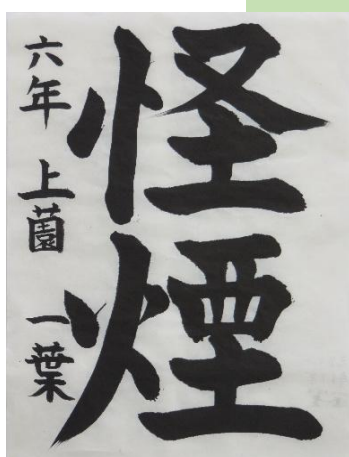 怪煙
六年 上薗 一葉